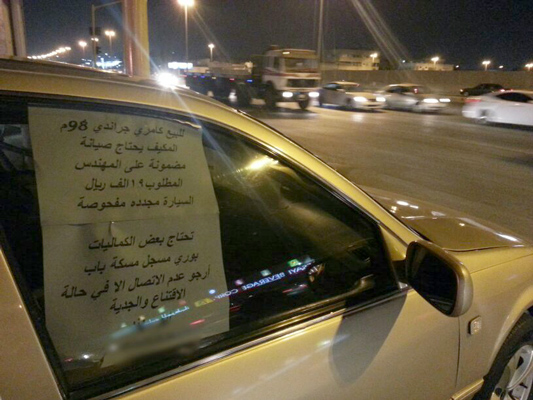 للبيع كامري جراندي 98م
المكيف يحتاج صيانة
مضمونة على المهندس
المطلوب ١٩الف ريال
السيارة مجدده مفحوصة
تحتاج بعض الكماليات
بوري مسجل مسكة باب
أرجو عدم الاتصال الا في حالة
الاقتناع والجدية
BEVERAGE